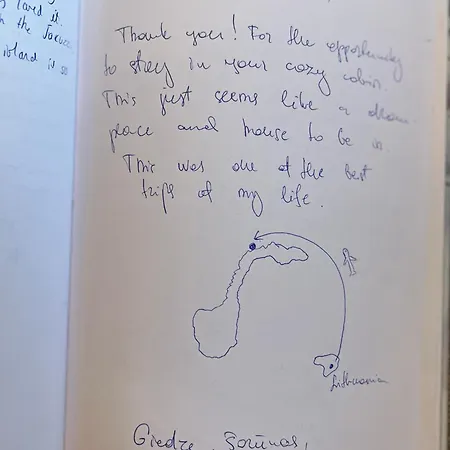 loved it.
the Jacuzzi
island is so
Thank you! For the opportunity
to stay in your cozy cabin.
This just seems like a dream
place and house to be in.
This was one of the best
trips of my life.
Lithuania
Giedrė, Šarūnas,